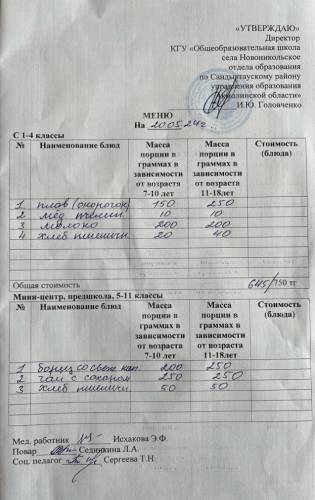 «УТВЕРЖДАЮ»
Директор
КГУ «Общеобразовательная школа
села Новоникольское
отдела образования
по Сандыктаускому району
управления образования
Акмолинской области»
И.Ю. Головченко
МЕНЮ
На 20.05.24г.
С 1-4 классы
№ Наименование блюд Масса порции в граммах в зависимости от возраста 7-10 лет Масса порции в граммах в зависимости от возраста 11-18лет Стоимость (блюда)
1 плов (окорочок) 150 250
2 мёд пчелин. 10 10
3 молоко 200 200
4 хлеб пшеничн. 20 40
Общая стоимость 645/750 тг
Мини-центр, предшкола, 5-11 классы
№ Наименование блюд Масса порции в граммах в зависимости от возраста 7-10 лет Масса порции в граммах в зависимости от возраста 11-18лет Стоимость (блюда)
1 борщ со свеж. кап. 200 250
2 чай с сахаром 250 250
3 хлеб пшеничн. 50 50
Мед. работник Исхакова Э.Ф.
Повар Сединкина Л.А.
Соц. педагог Сергеева Т.Н.